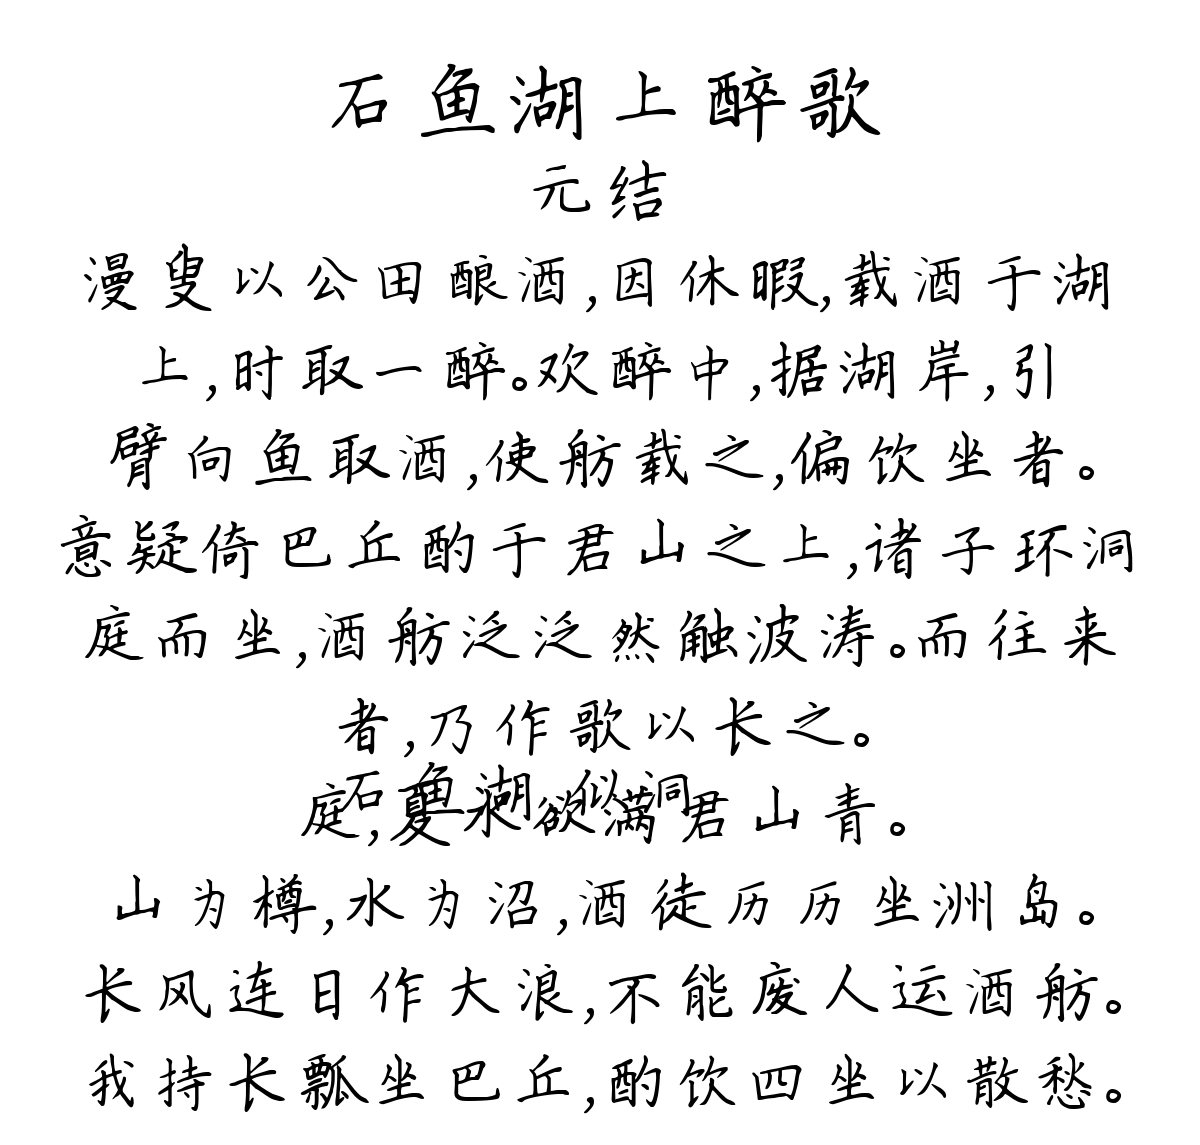 石鱼湖上醉歌
元结
漫叟以公田酿酒,因休暇,载酒于湖
上,时取一醉。欢醉中,据湖岸,引
臂向鱼取酒,使舫载之,偏饮坐者。
意疑倚巴丘酌于君山之上,诸子环洞
庭而坐,酒舫泛泛然触波涛。而往来
者,乃作歌以长之。
石鱼湖,似洞
庭,夏水欲满君山青。
山为樽,水为沼,酒徒历历坐洲岛。
长风连日作大浪,不能废人运酒舫。
我持长瓢坐巴丘,酌饮四坐以散愁。